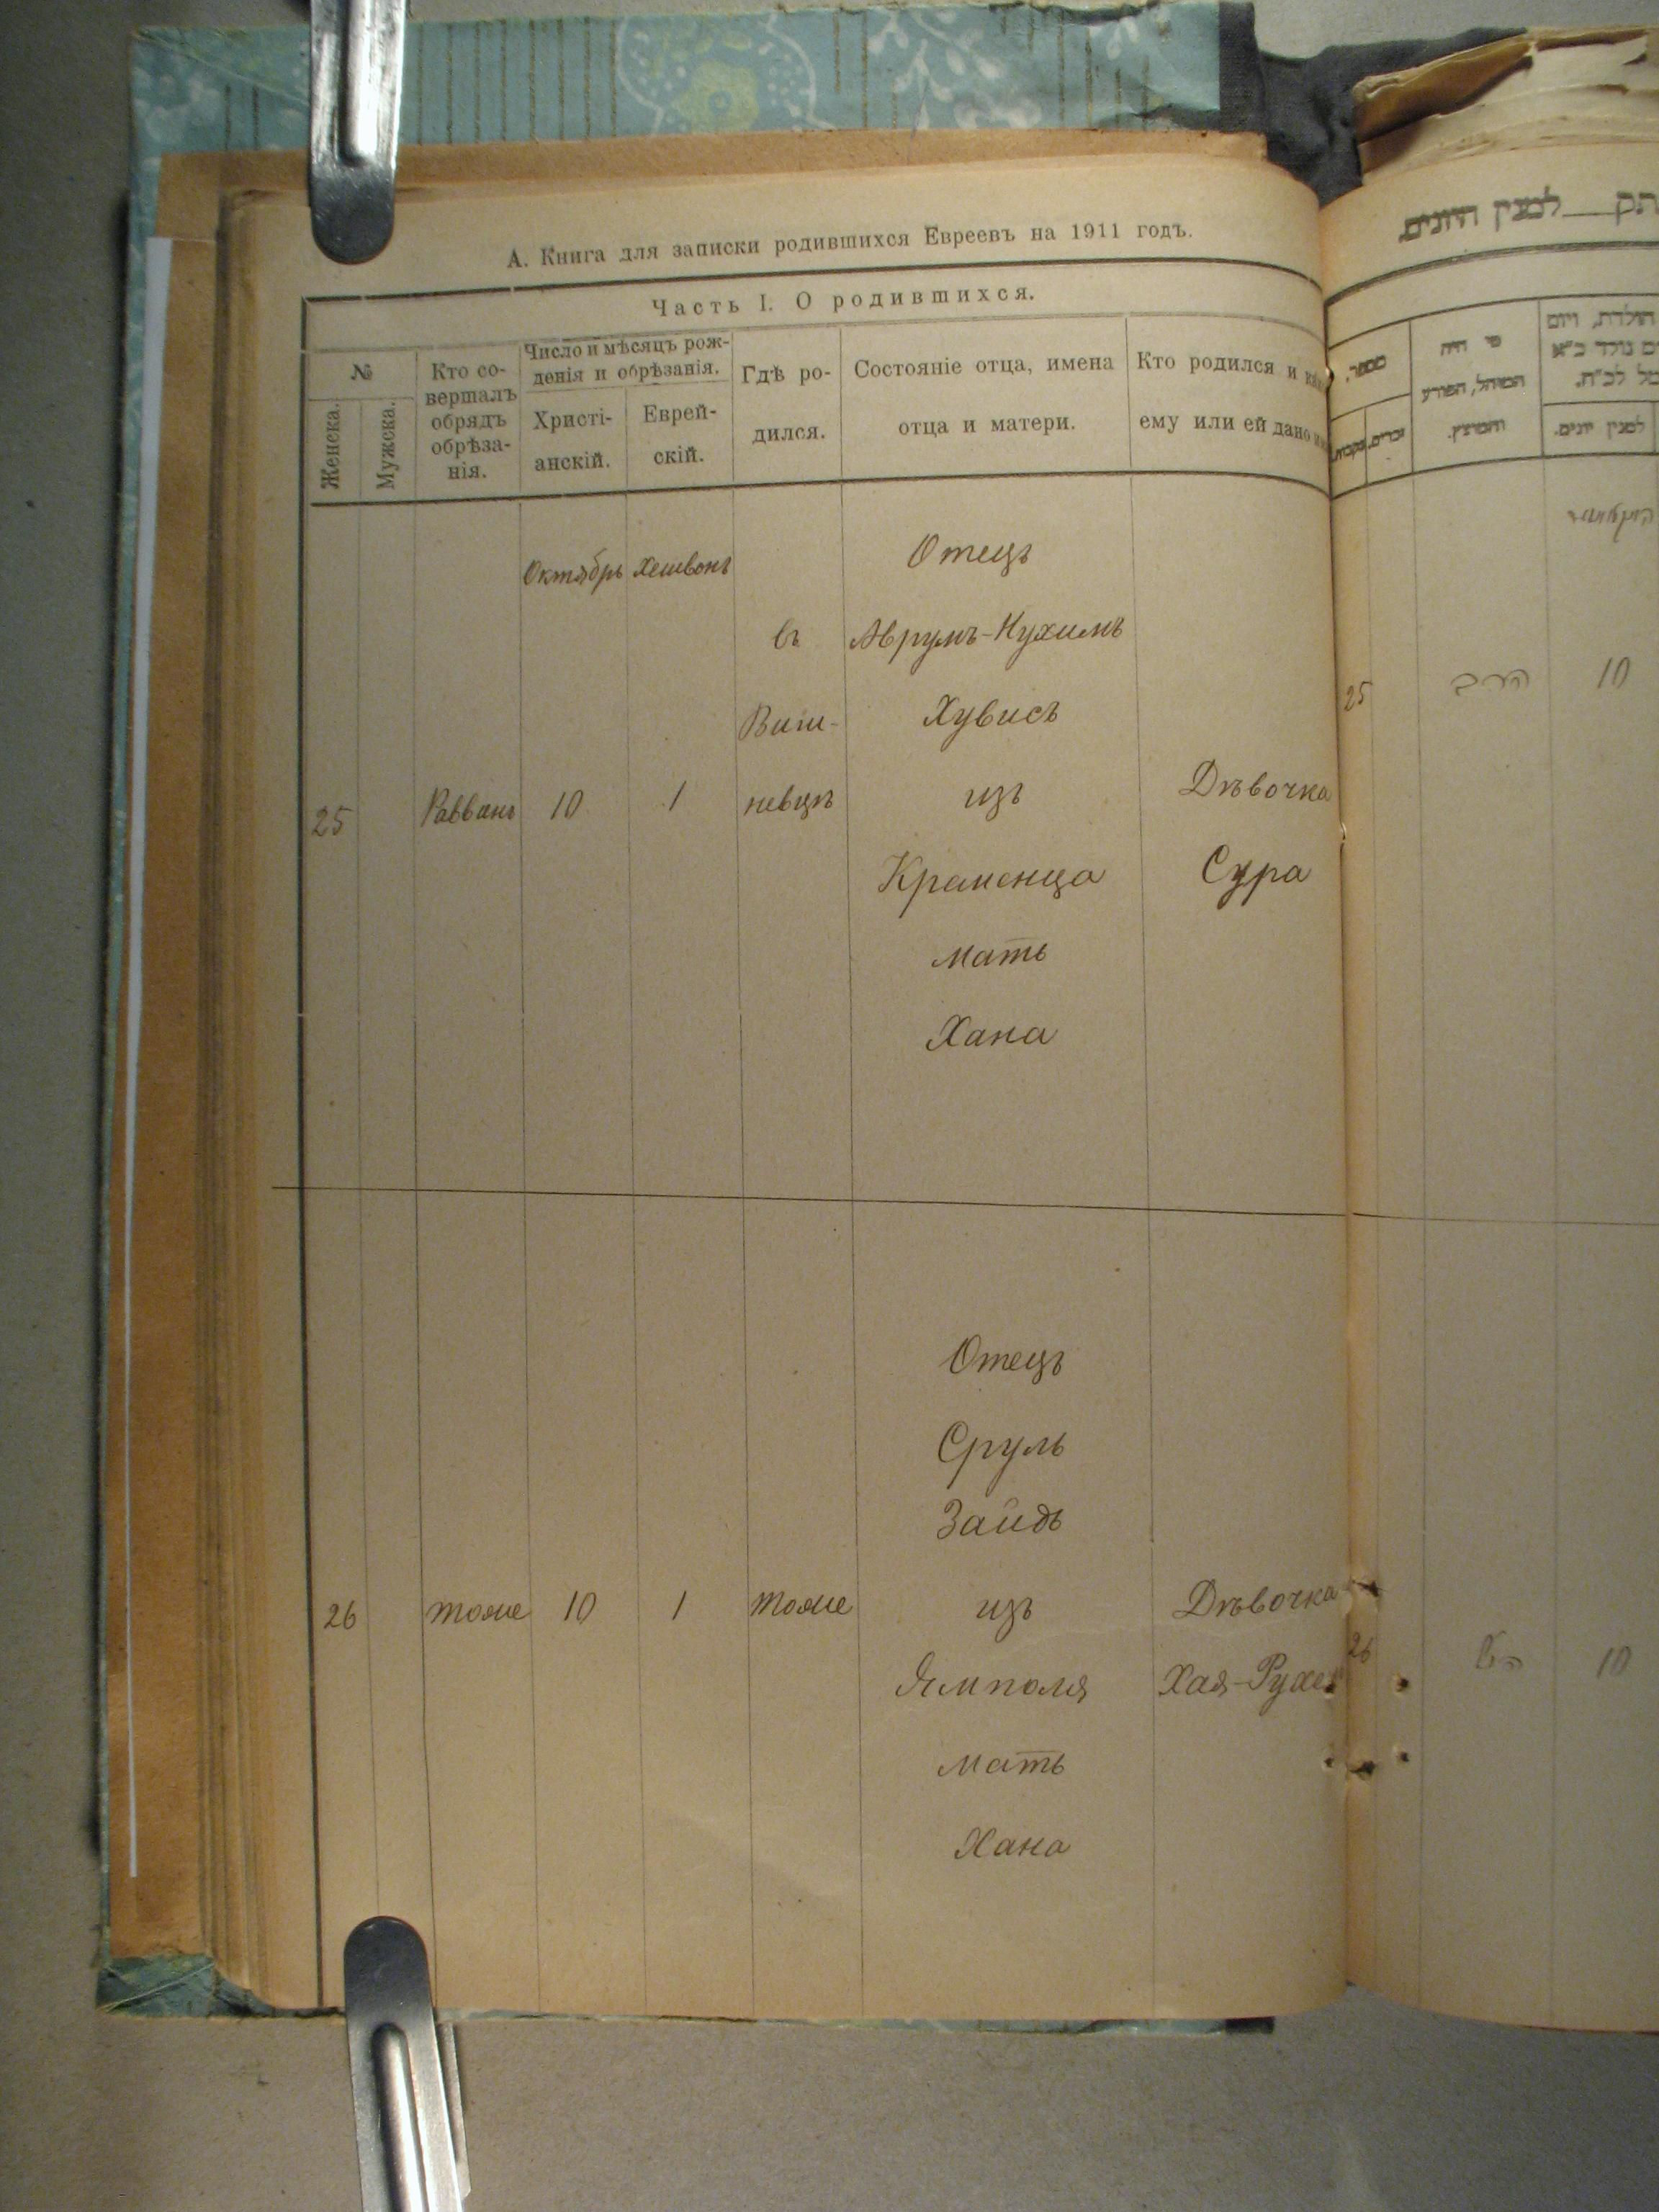 А. Книга для записки родившихся Евреевъ на 1911 годъ.
Часть I. О родившихся.
№
Женска.
Мужска.
Кто со-
вершалъ
обрядъ
обрѣза-
нія.
Число и мѣсяцъ рож-
денія и обрѣзанія.
Христі-
анскій.
Еврей-
скій.
Гдѣ ро-
дился.
Состояніе отца, имена
отца и матери.
Кто родился и
ему или ей дано
Октябрь Хешвонъ
25
Раввинъ
10
1
въ
Виш-
невцѣ
Отецъ
Аврумъ-Нухимъ
Хувисъ
изъ
Кременца
мать
Хана
Дѣвочка
Сура
26
тоже
10
1
тоже
Отецъ
Сруль
Зайдъ
изъ
Ямполя
мать
Хана
Дѣвочка
Хая-Рухел
למנין היונים
מספר.
זכרים.
נקבות.
מי היה
המוהל, הפורע
והמוצץ.
הולדת, ויום
למנין יונים.
25
10
26
10